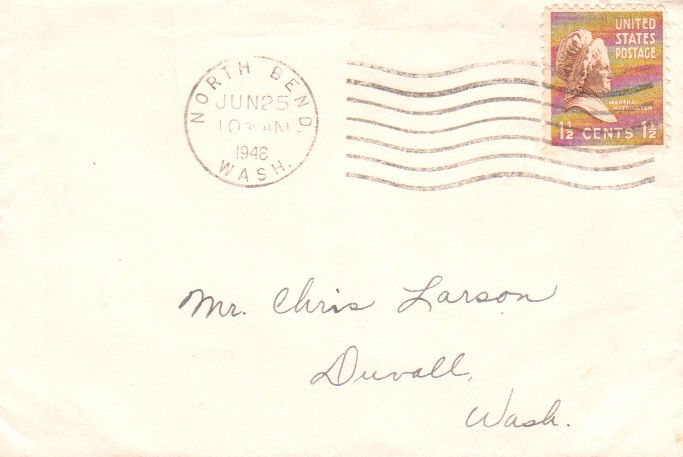 NORTH BEND
JUN 25
10 AM
1948
WASH.
UNITED
STATES
POSTAGE
MARTHA
WASHINGTON
1½ CENTS 1½
Mr. Chris Larson
Duvall,
Wash.